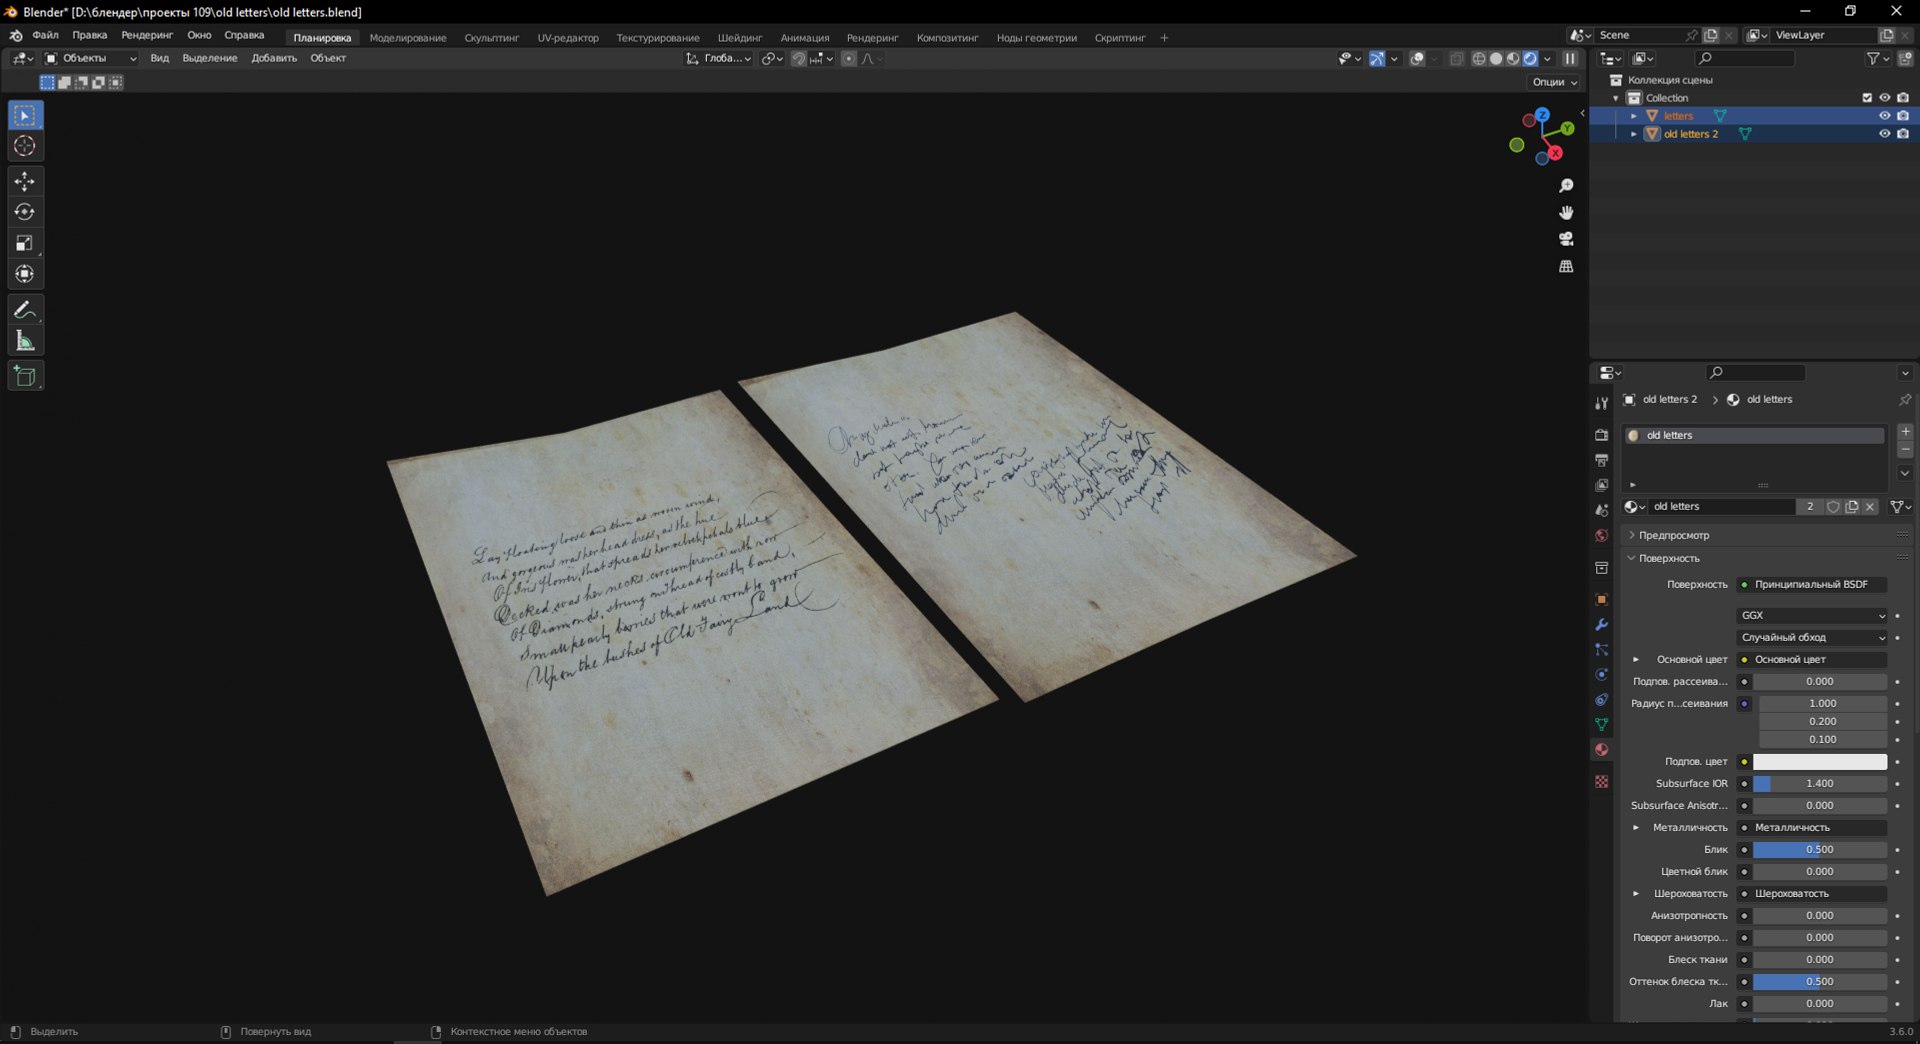 Blender* [D:\блендер\проекты 109\old letters\old letters.blend]
Файл Правка Рендеринг Окно Справка
Планировка Моделирование Скульптинг UV-редактор Текстурирование Шейдинг Анимация Рендеринг Композитинг Ноды геометрии Скриптинг +
Scene
ViewLayer
Объекты Вид Выделение Добавить Объект
Глоба...
Опции
Коллекция сцены
Collection
letters
old letters 2
Z
Y
X
Lay floating loose and thin as woven wind,
And gorgeous was her head dress, as the hue
Of Iris flower, that spreads her velvet petals blue
Decked was her necks circumference with row
Of Diamonds, strung on thread of costly band,
Small pearly berries that were wont to grow
Upon the bushes of Old Fairy Land
old letters 2 > old letters
old letters
old letters 2
Предпросмотр
Поверхность
Поверхность Принципиальный BSDF
GGX
Случайный обход
Основной цвет Основной цвет
Подпов. рассеива... 0.000
Радиус п...сеивания 1.000
0.200
0.100
Подпов. цвет
Subsurface IOR 1.400
Subsurface Anisotr... 0.000
Металличность Металличность
Блик 0.500
Цветной блик 0.000
Шероховатость Шероховатость
Анизотропность 0.000
Поворот анизотро... 0.000
Блеск ткани 0.000
Оттенок блеска тк... 0.500
Лак 0.000
Выделить Повернуть вид Контекстное меню объектов
3.6.0